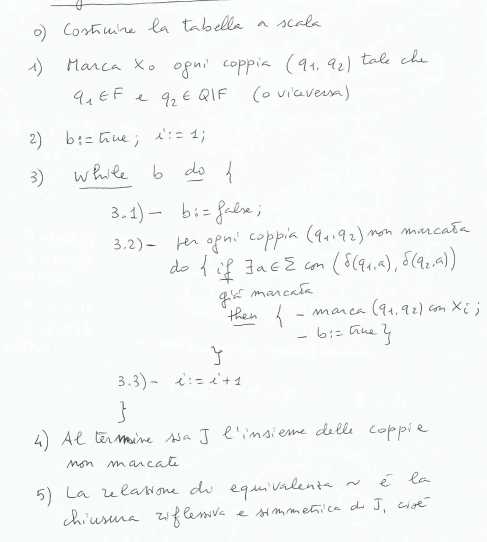 0) Costruire la tabella a scala
1) Marca X₀ ogni coppia (q₁, q₂) tale che
q₁ ∈ F e q₂ ∈ Q\F (o viceversa)
2) b:= true; i:= 1;
3) while b do {
3.1) - b:= false;
3.2) - per ogni coppia (q₁,q₂) non marcata
do { if ∃a∈Σ con (δ(q₁,a), δ(q₂,a))
già marcata
then { - marca (q₁,q₂) con Xᵢ;
- b:= true }
}
3.3) - i:= i+1
}
4) Al termine sia J l'insieme delle coppie
non marcate
5) La relazione di equivalenza ~ è la
chiusura riflessiva e simmetrica di J, cioè